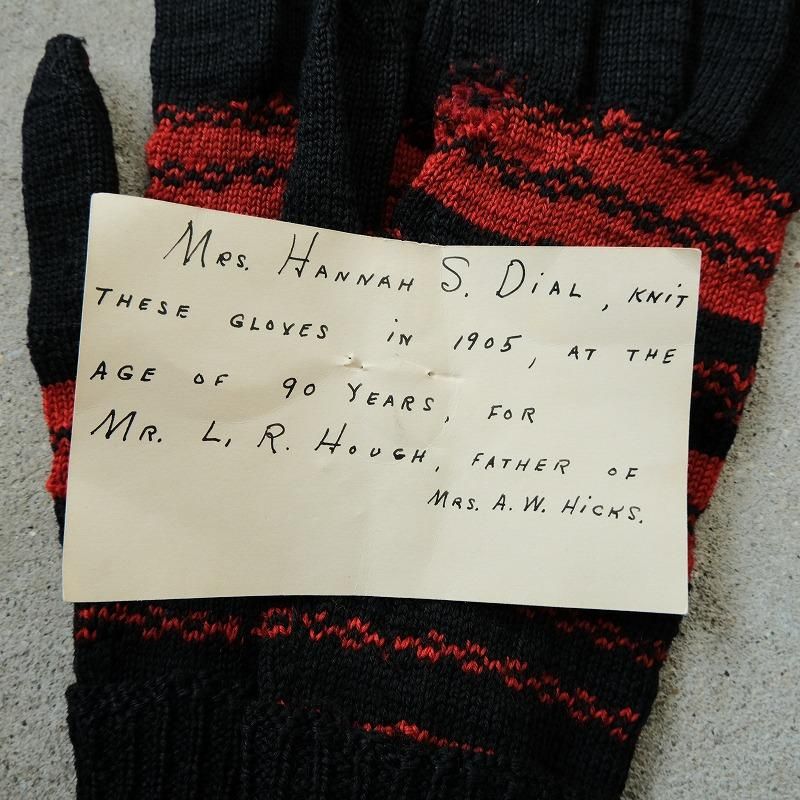 Mrs. Hannah S. Dial, knit
these gloves in 1905, at the
age of 90 years, for
Mr. L. R. Hough, father of
Mrs. A. W. Hicks.